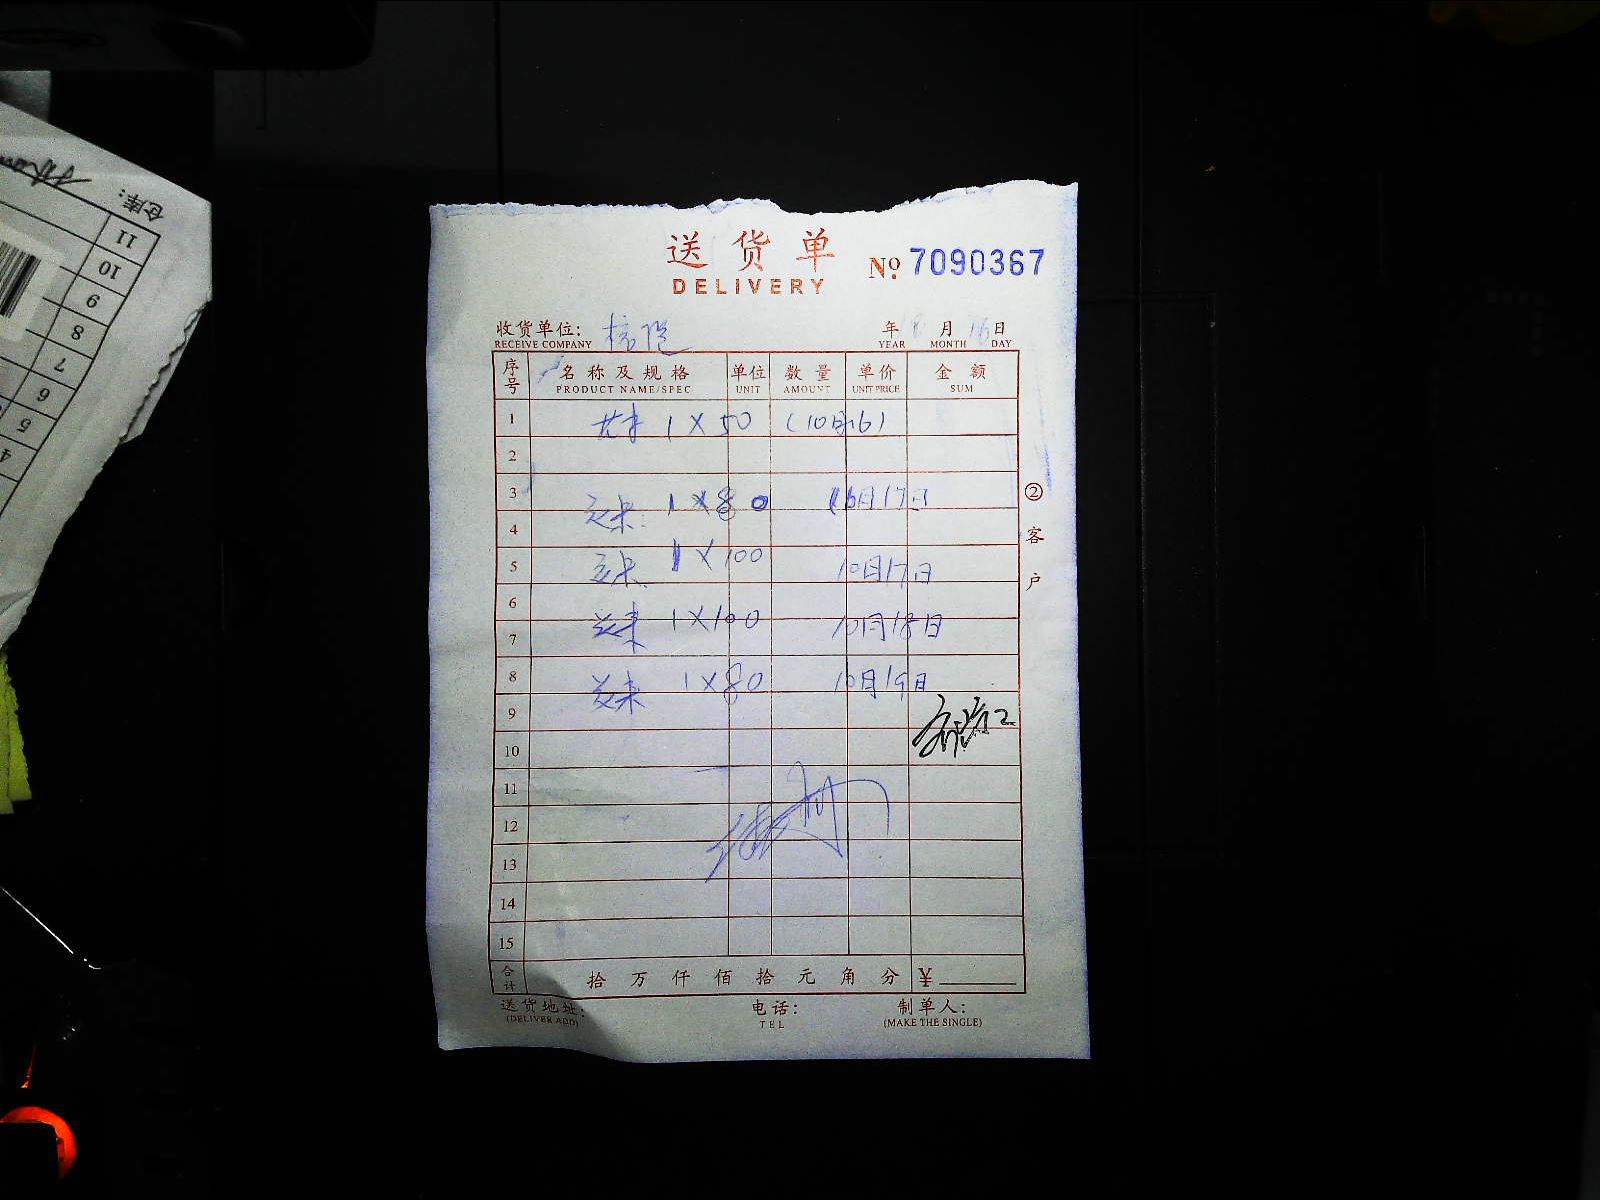 送货单
DELIVERY
№ 7090367
收货单位:
RECEIVE COMPANY
年 月 日
YEAR MONTH DAY
序号 名称及规格 单位 数量 单价 金额
PRODUCT NAME/SPEC UNIT AMOUNT UNIT PRICE SUM
1 1×50 (10月16)
2
3 1×80 10月17日
4
5 1×100 10月17日
6 1×100
7 10月18日
8 1×80 10月19日
9
10
11
12
13
14
15
合计 拾 万 仟 佰 拾 元 角 分 ¥
送货地址: 电话: 制单人:
(DELIVER ADD) TEL (MAKE THE SINGLE)
②客户
仓库:
11
10
9
8
7
6
5
4